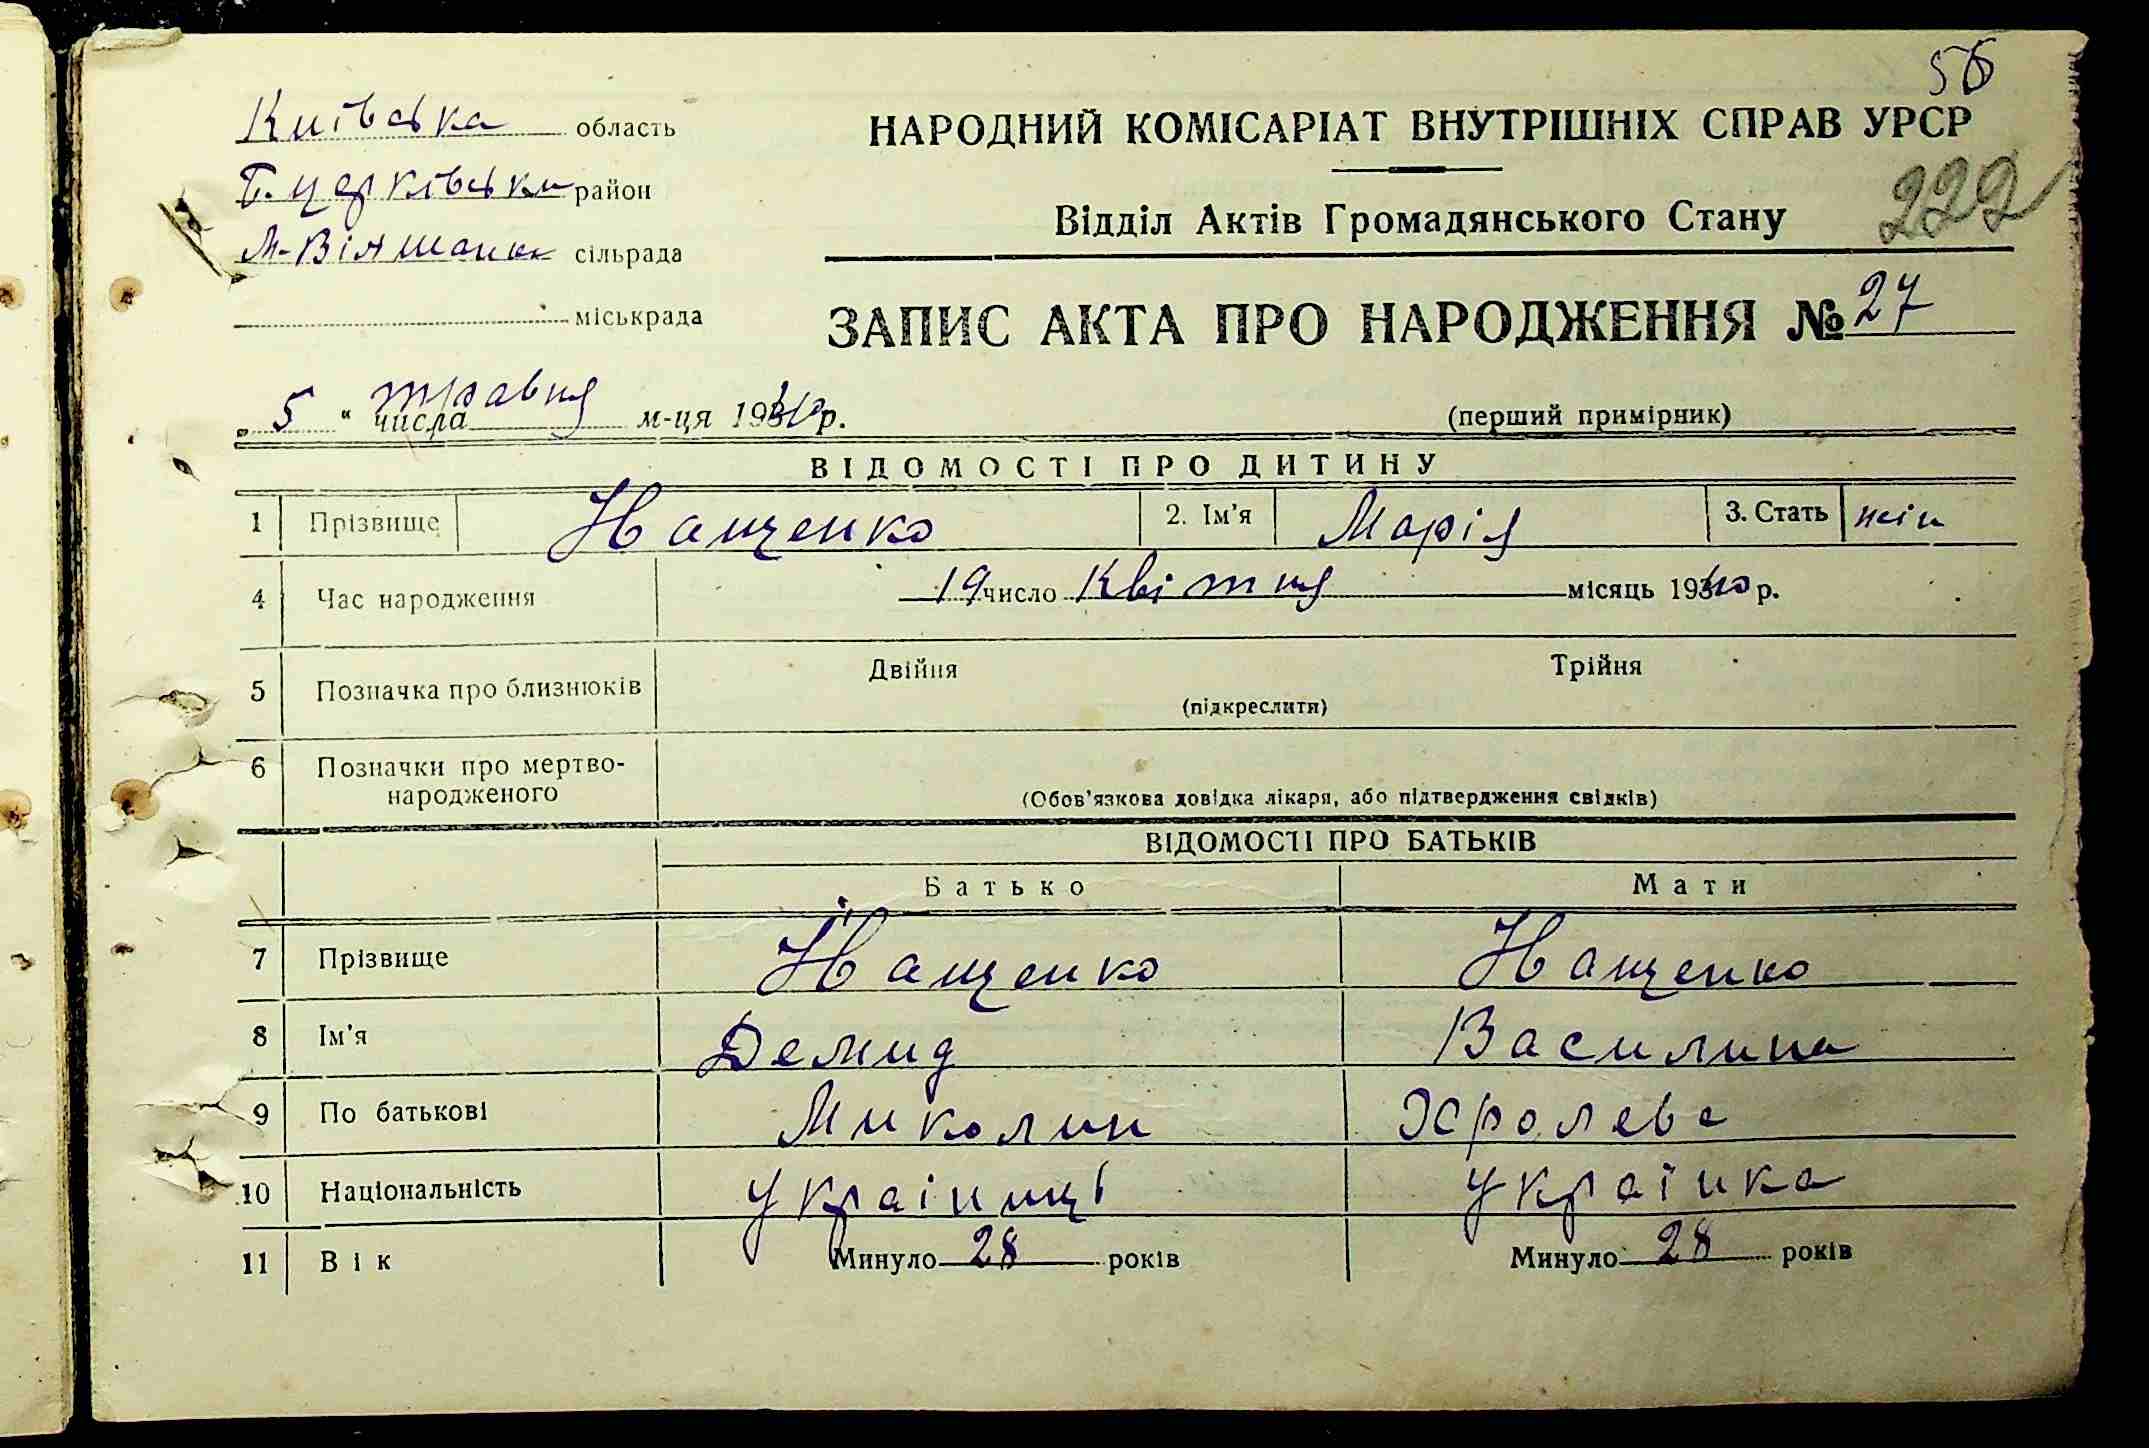 56
Київська область
НАРОДНИЙ КОМІСАРІАТ ВНУТРІШНІХ СПРАВ УРСР
Б. церківськи район
222
Відділ Актів Громадянського Стану
М-Вільшанськ сільрада
міськрада
ЗАПИС АКТА ПРО НАРОДЖЕННЯ № 27
„ 5 " числа травня м-ця 1940 р.
(перший примірник)
ВІДОМОСТІ ПРО ДИТИНУ
1 Прізвище Нащенко 2. Ім'я Марія 3. Стать жін
4 Час народження 19 число Квітня місяць 1940 р.
5 Позначка про близнюків Двійня Трійня
(підкреслити)
6 Позначки про мертво-
народженого
(Обов'язкова довідка лікаря, або підтвердження свідків)
ВІДОМОСТІ ПРО БАТЬКІВ
Батько Мати
7 Прізвище Нащенко Нащенко
8 Ім'я Демид Василина
9 По батькові Миколин
10 Національність Українці Українка
11 Вік Минуло 28 років Минуло 28 років